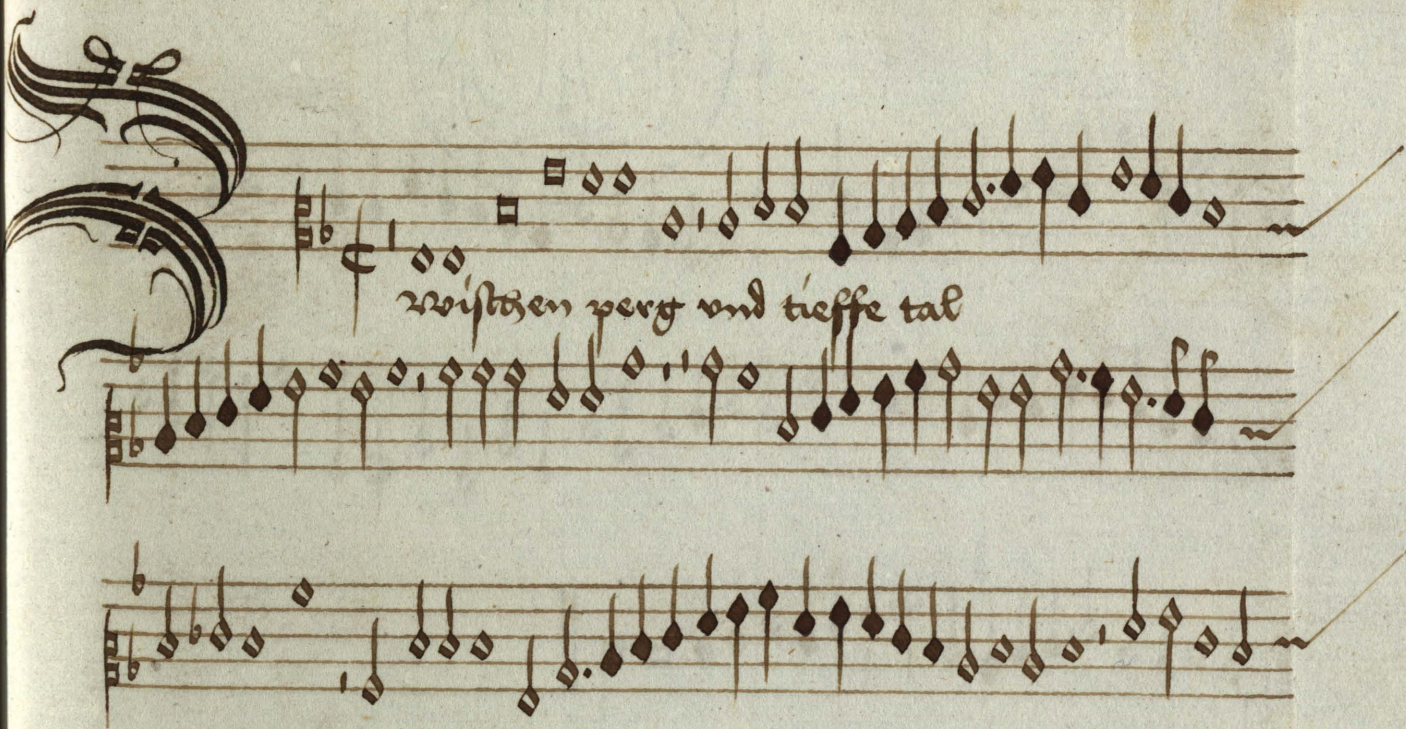 Zwischen perg vnd tieffe tal